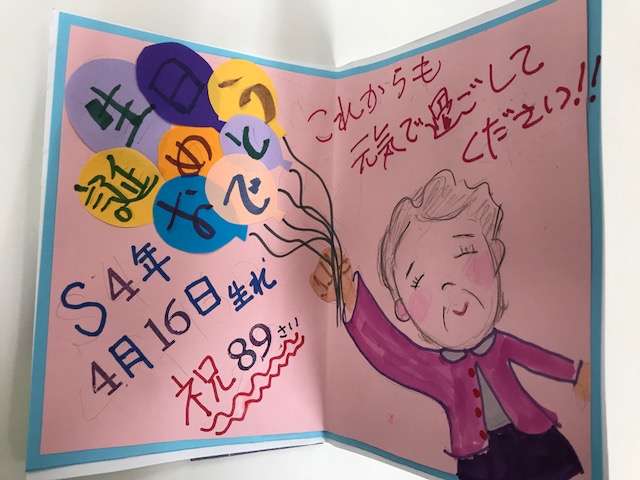 誕生日
おめ
でとう
S4年
4月16日生れ
祝89さい
これからも
元気で過ごして
ください!!